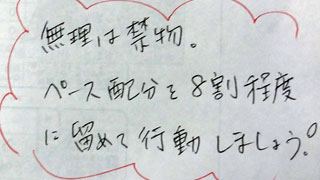 無理は禁物。
ペース配分を8割程度
に留めて行動しましょう!